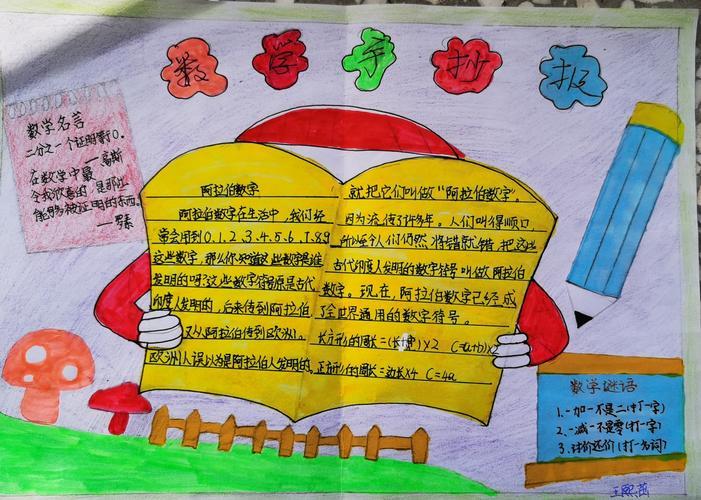 数学手抄报
数学名言
二分之一个证明等于0。
——高斯
在数学中最
令我欣喜的,是那些
能够被证明的东西。
——罗素
阿拉伯数字
阿拉伯数字在生活中,我们经
常会用到0.1.2.3.4.5.6.7.8.9
这些数字,那么你知道这些数字是谁
发明的吗?这些数字符号原是古代
印度人发明的,后来传到阿拉伯,
又从阿拉伯传到欧洲。
欧洲人误以为是阿拉伯人发明的,
就把它们叫做“阿拉伯数字”。
因为流传了许多年。人们叫得顺口,
所以至今人们仍然将错就错,把这些
古代印度人发明的数字符号叫做阿拉伯
数字。现在,阿拉伯数字已经成
了全世界通用的数字符号。
长方形的周长=(长+宽)×2 C=(a+b)×2
正方形的周长=边长×4 C=4a
数学谜语
1.一加一不是二(打一字)
2.一减一不是零(打一字)
3.讨价还价(打一名词)